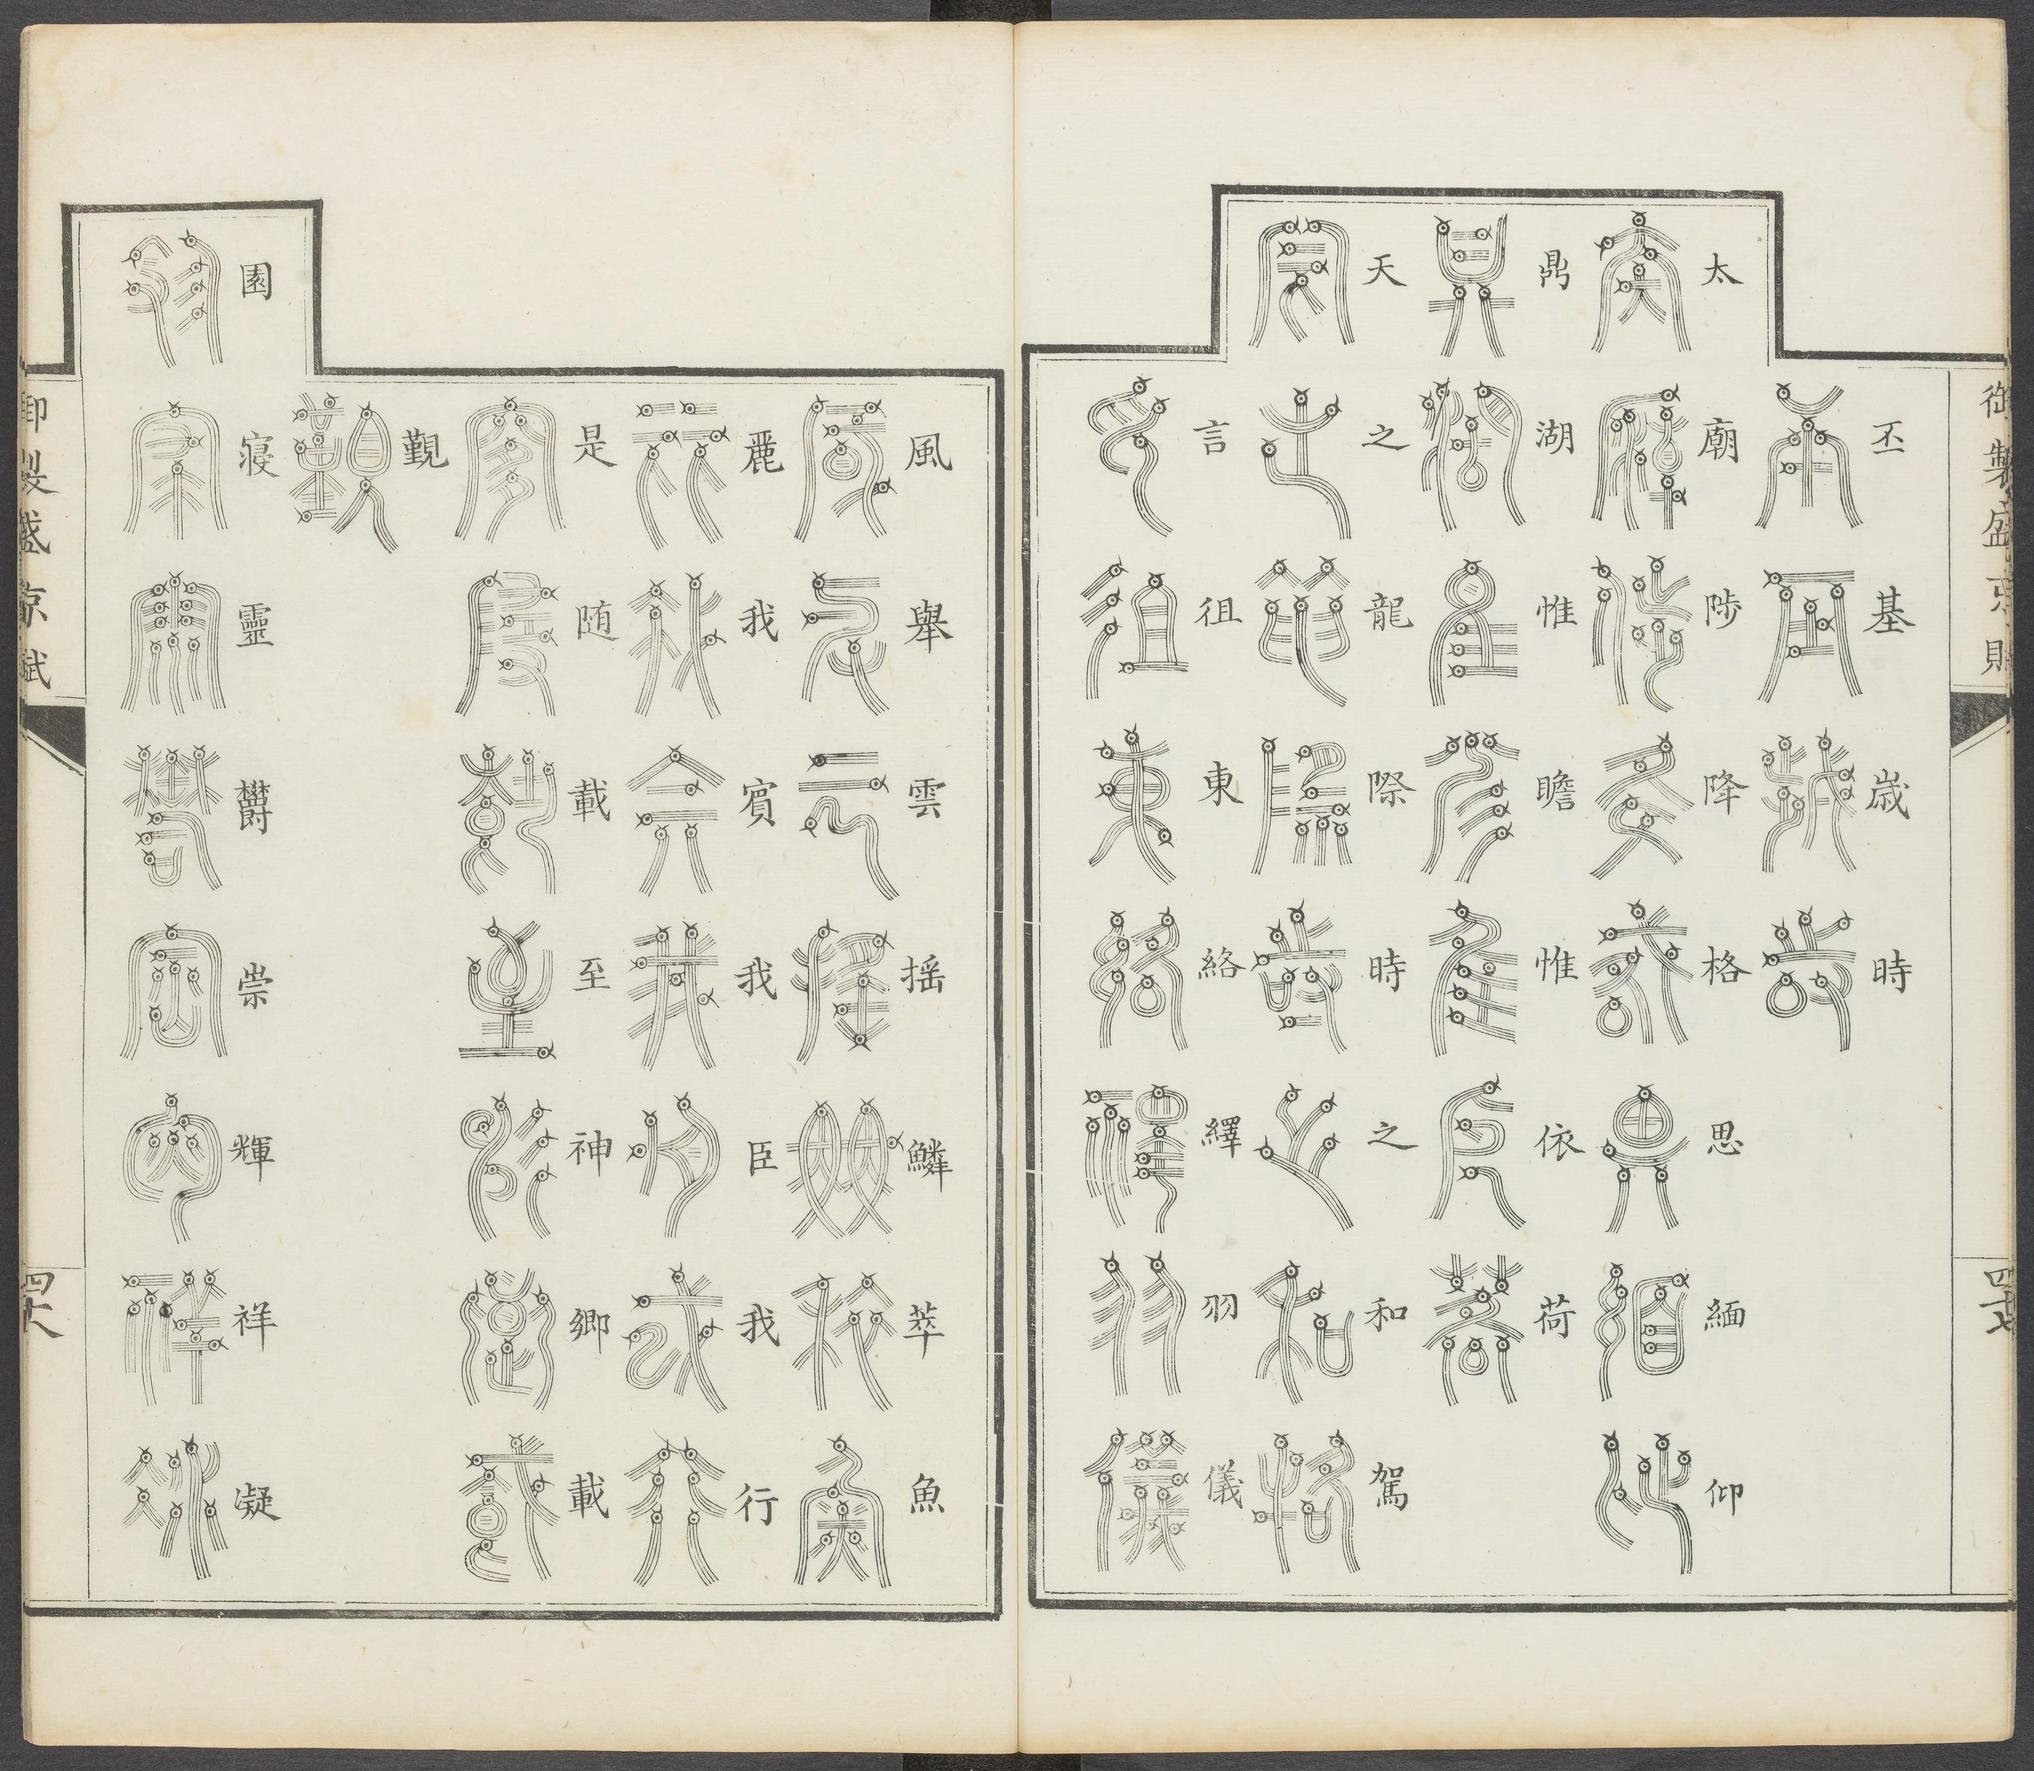 御製盛京賦
四十七
丕基歲時
太廟陟降格思緬仰
鼎湖惟瞻惟依荷
天之龍際時之和駕
言徂東絡繹羽儀
風舉雲搖鱗萃魚
麗我賓我臣我行
是随載至神鄉載
觀
園寢靈欝崇輝祥凝
御製盛京賦
四十八